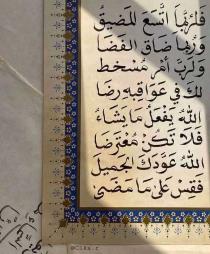 فَلَرُبَّمَا اتَّسَعَ المَضِيقُ
وَرُبَّمَا ضَاقَ الفَضَا
وَلَرُبَّ أَمْرٍ مُسْخِطٍ
لَكَ فِي عَوَاقِبِهِ رِضَا
اللهُ يَفْعَلُ مَا يَشَاءُ
فَلَا تَكُنْ مُعْتَرِضَا
اللهُ عَوَّدَكَ الجَمِيلَ
فَقِسْ عَلَى مَا مَضَى